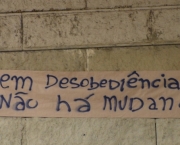 em Desobediência
Não há mudan